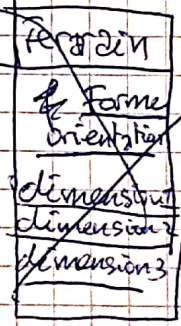 terrain
Forme
orientation
dimension1
dimension2
dimension3